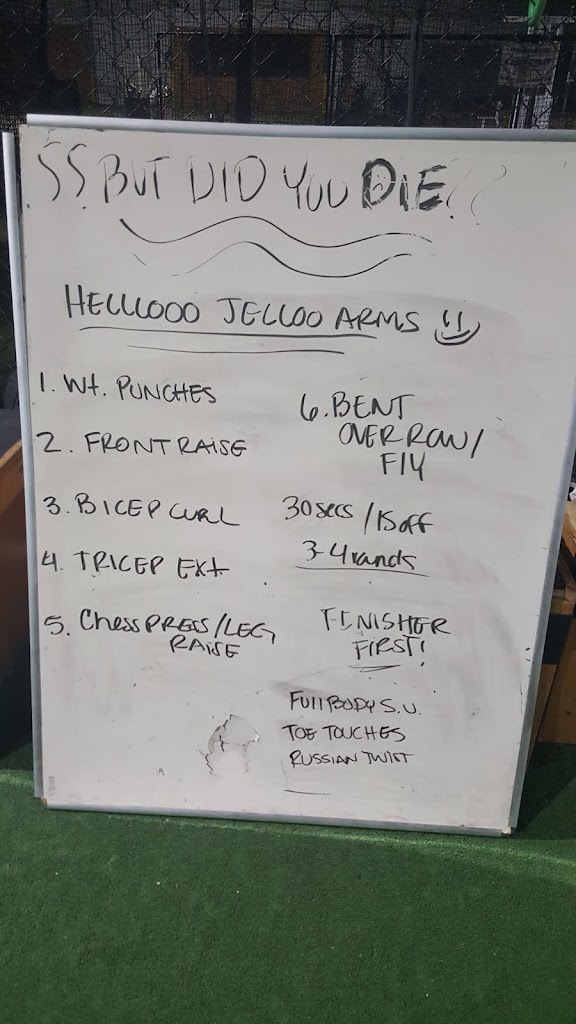 ¿¿BUT DID YOU DIE??
HELLLOOO JELLOO ARMS
1. Wt. PUNCHES
2. FRONT RAISE
3. BICEP CURL
4. TRICEP EXt
5. ChessPRESS/LEG
RAISE
6. BENT
OVER ROW/
FLY
30 secs/15 off
3-4 rands
FINISHER
FIRST!
FUll BODY S.U.
TOE TOUCHES
RUSSIAN TWIST